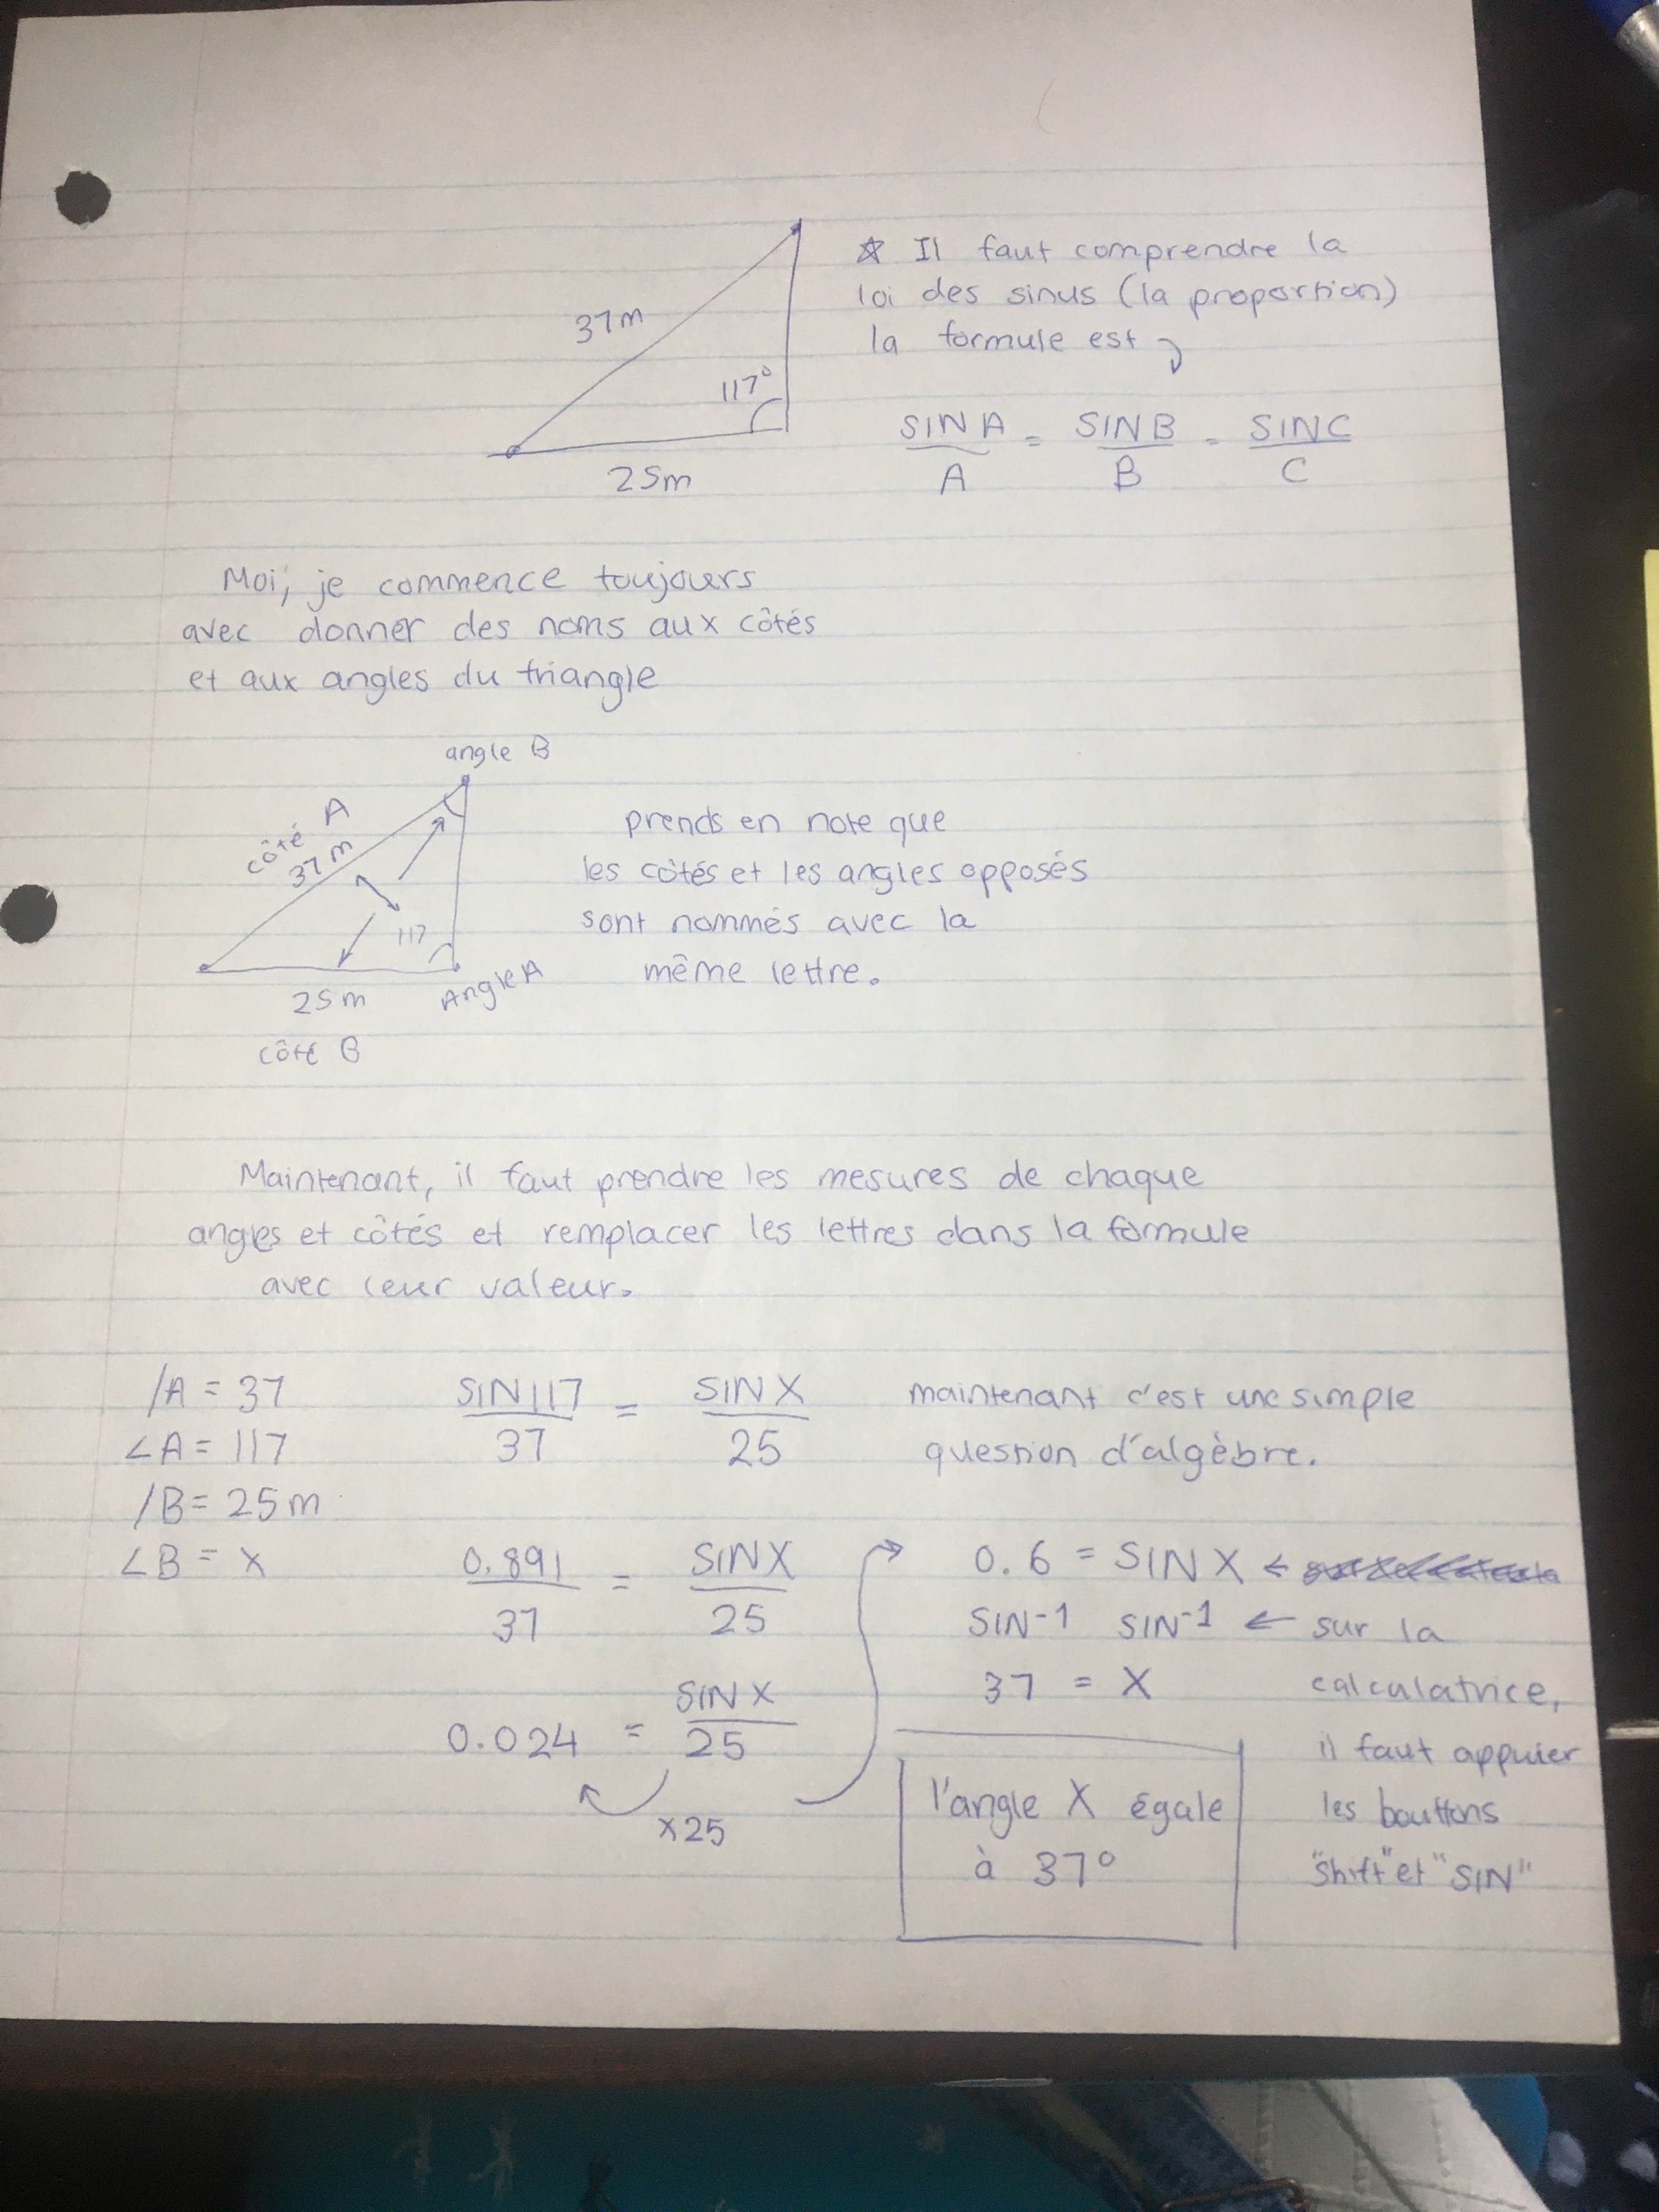 37m
117°
25m
☆ Il faut comprendre la
loi des sinus (la proportion)
la formule est ↓
SIN A / A = SIN B / B = SIN C / C
Moi, je commence toujours
avec donner des noms aux côtés
et aux angles du triangle
angle B
côté A
37 m
117
Angle A
25m
côté B
prends en note que
les côtés et les angles opposés
sont nommés avec la
même lettre.
Maintenant, il faut prendre les mesures de chaque
angles et côtés et remplacer les lettres dans la formule
avec leur valeur.
/A = 37
∠A = 117
/B = 25m
∠B = x
SIN117 / 37 = SIN X / 25
0.891 / 37 = SIN X / 25
0.024 = SIN X / 25
x25
maintenant c'est une simple
question d'algèbre.
0.6 = SIN X ←
SIN-1 SIN-1 ← sur la
37 = X
calculatrice,
il faut appuier
les bouttons
"Shift" et "SIN"
l'angle X égale
à 37°